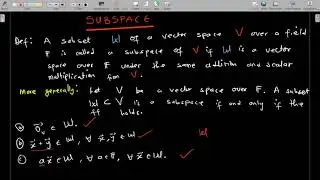 SUBSPACE
Def: A subset W of a vector space V over a field
F is called a subspace of V if W is a vector
space over F under the same addition and scalar
multiplication from V.
More generally: Let V be a vector space over F. A subset
W ⊂ V is a subspace if and only if the
ff holds.
a) 0⃗_V ∈ W. ✓
b) x⃗+y⃗ ∈ W, ∀ x⃗, y⃗ ∈ W ✓ W
c) a x⃗ ∈ W, ∀ a ∈ F, ∀ x⃗ ∈ W. ✓